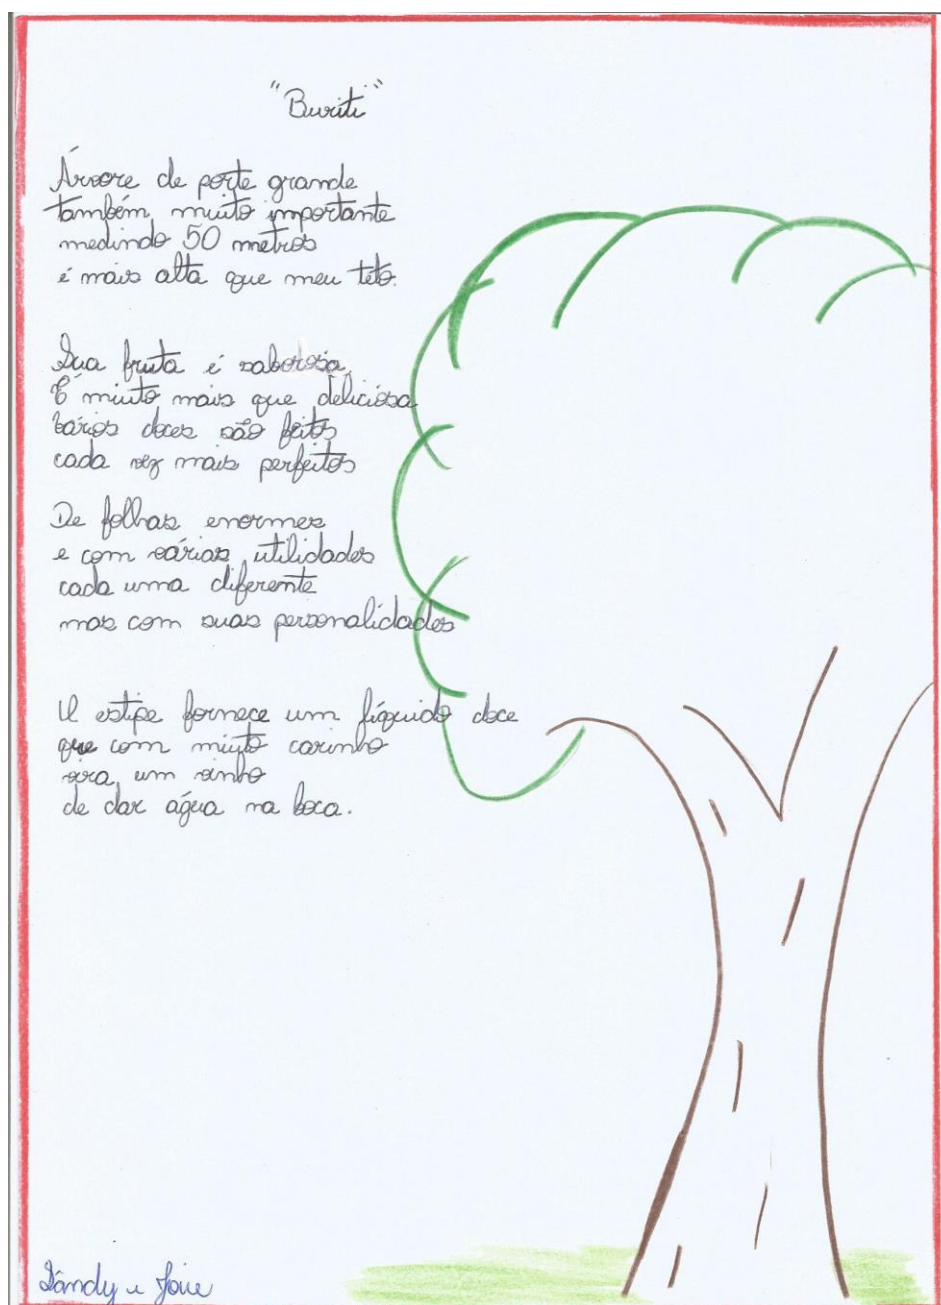 "Buriti"
Árvore de porte grande
também muito importante
medindo 50 metros
é mais alta que meu teto.
Sua fruta é saborosa,
É miuto mais que deliciosa
Vários doces são feitos
cada vez mais perfeitos
De folhas enormes
e com várias utilidades
cada uma diferente
mas com suas personalidades
O estipe fornece um líquido doce
que com miuto carinho
vira um vinho
de dar água na boca.
Sândy e